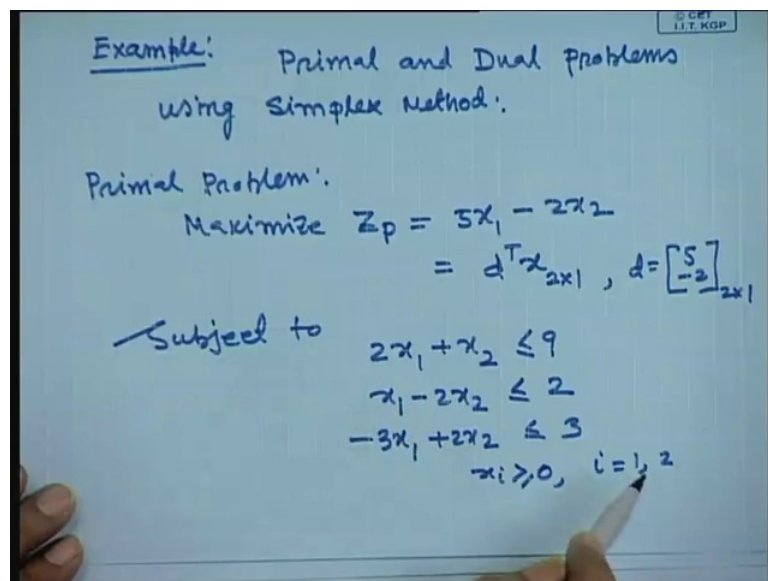 © CET
I.I.T. KGP
Example: Primal and Dual Problems
using Simplex Method:.
Primal Problem:.
Maximize Zp = 5x₁ - 2x₂
= dᵀx₂ₓ₁ , d = [5 -2]₂ₓ₁
Subject to
2x₁ + x₂ ≤ 9
x₁ - 2x₂ ≤ 2
-3x₁ + 2x₂ ≤ 3
xᵢ ≥ 0, i = 1, 2